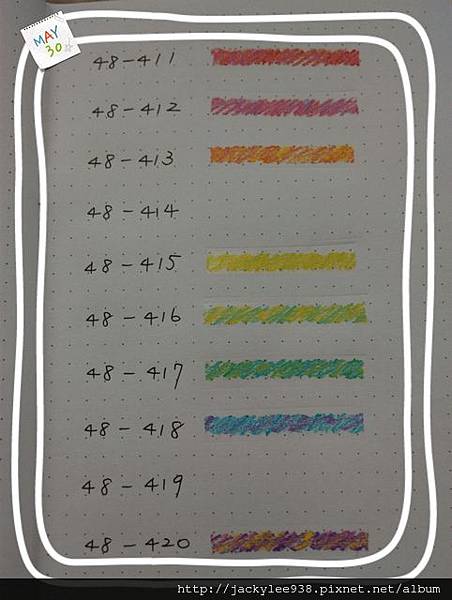 MAY
30
48-411
48-412
48-413
48-414
48-415
48-416
48-417
48-418
48-419
48-420
http://jackylee938.pixnet.net/album